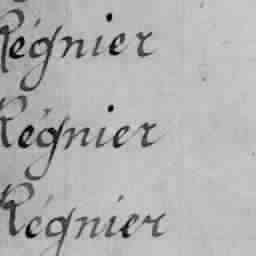 Régnier
Régnier
Régnier